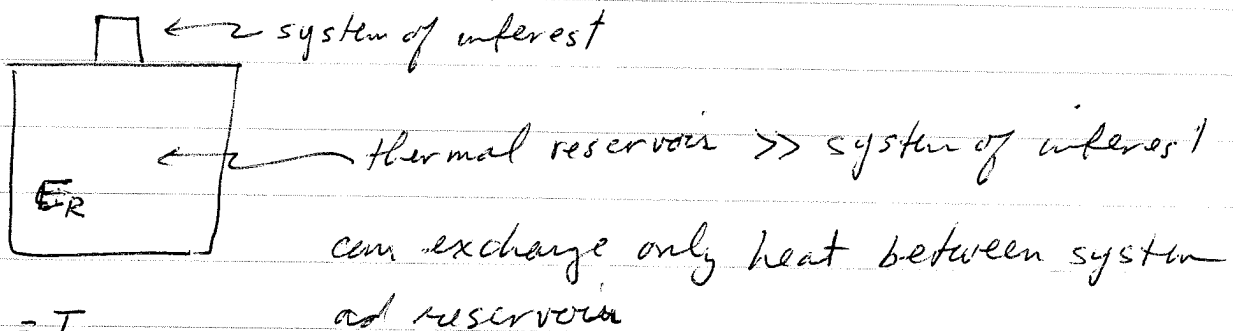 system of interest
thermal reservoir >> system of interest
E_R
can exchange only heat between system
ad reservoir
- T